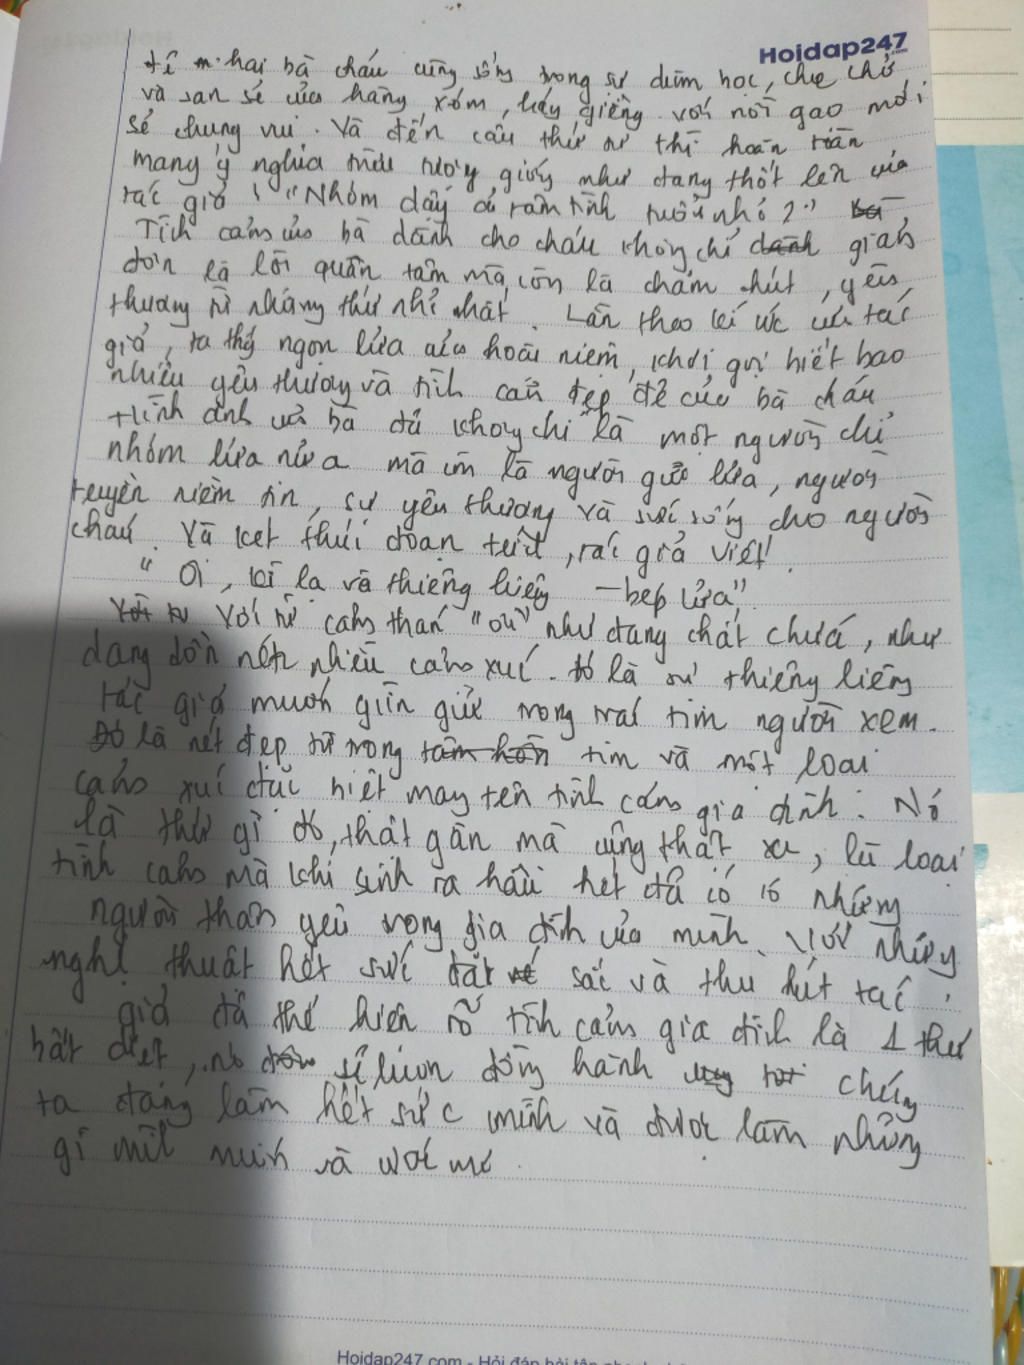 Hoidap247
.com
hai bà cháu cùng sống trong sự đùm bọc, che chở
và san sẻ của hàng xóm, láng giềng với nồi gạo mới
sẻ chung vui. Và đến câu thứ tư thì hoàn toàn
mang ý nghĩa trừu tượng giống như đang thốt lên của
tác giả "Nhóm dậy cả tâm tình tuổi nhỏ?"
Tình cảm của bà dành cho cháu không chỉ dành giản
đơn là lời quan tâm mà còn là chăm chút, yêu
thương từ những thứ nhỏ nhất. Lần theo kí ức của tác
giả, ta thấy ngọn lửa của hoài niệm, khơi gợi biết bao
nhiêu yêu thương và tình cảm đẹp đẽ của bà cháu
Hình ảnh của bà đã không chỉ là một người chỉ
nhóm lửa nữa mà còn là người giữ lửa, người
truyền niềm tin, sự yêu thương và sức sống cho người
cháu. Và kết thúc đoạn trích, tác giả viết:
"Ôi, kì lạ và thiêng liêng – bếp lửa"
Với từ cảm thán "ôi" như đang chất chứa, như
đang dồn nén nhiều cảm xúc. Đó là sự thiêng liêng
tác giả muốn gìn giữ trong trái tim người xem.
Đó là nét đẹp từ trong tâm hồn tim và một loại
cảm xúc đặc biệt mang tên tình cảm gia đình. Nó
là thứ gì đó, thật gần mà cũng thật xa, là loại
tình cảm mà khi sinh ra hầu hết đã có từ những
người thân yêu trong gia đình của mình. Với những
nghệ thuật hết sức đặt sắc và thu hút tác
giả đã thể hiện rõ tình cảm gia đình là 1 thứ
bất diệt, nó sẽ luôn đồng hành chúng
ta đang làm hết sức mình và được làm những
gì mình muốn và ước mơ.
Hoidap247.com - Hỏi đáp bài tập